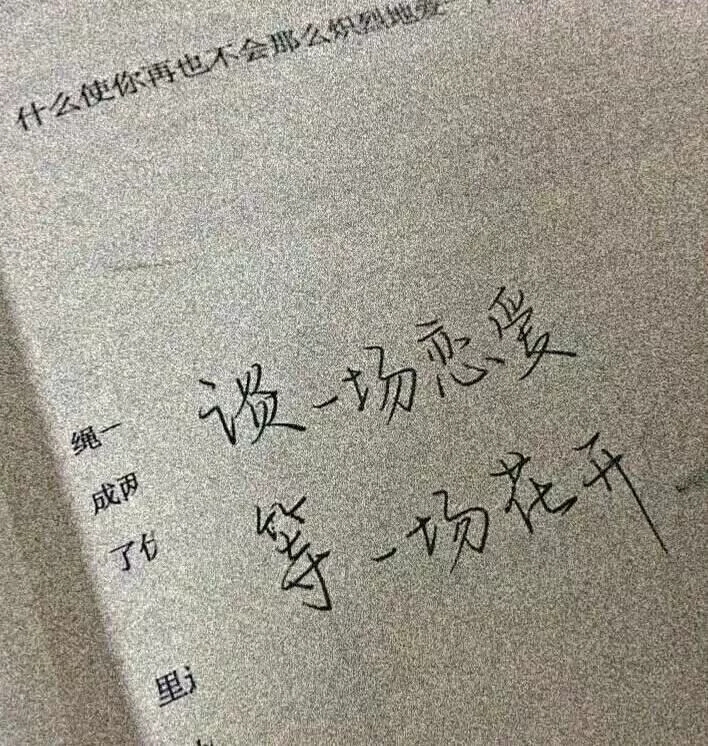 什么使你再也不会那么炽烈地爱一
谈一场恋爱
绳一
成两
等一场花开
了
里